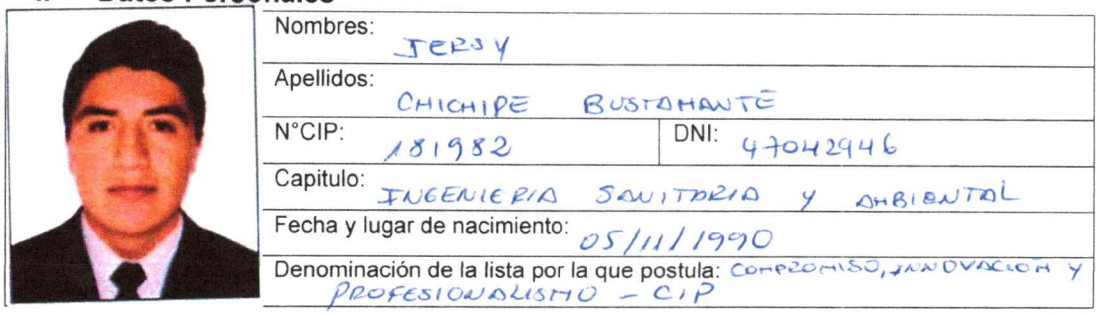 Datos Personales
Nombres:
JERSY
Apellidos:
CHICHIPE BUSTAMANTE
N°CIP: 181982 DNI: 47042946
Capitulo: INGENIERIA SANITARIA Y AMBIENTAL
Fecha y lugar de nacimiento: 05/11/1990
Denominación de la lista por la que postula: COMPROMISO, INNOVACION Y
PROFESIONALISMO - CIP